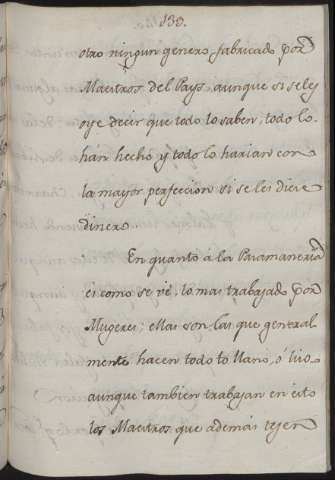 133.
otro ningun genero, fabricado por
Maestros del Pays, aunque si seles
oye decir que todo lo saben, todo lo
han hecho, y todo lo harian con
la mayor perfeccion si se les diere
dinero.
En quanto á la Pasamaneria
es como se vé, lo mas trabajado por
Mugeres; ellas son las que general
mente hacen todo lo llano, ó liso
aunque tambien trabajan en esto
los Maestros que además tejen